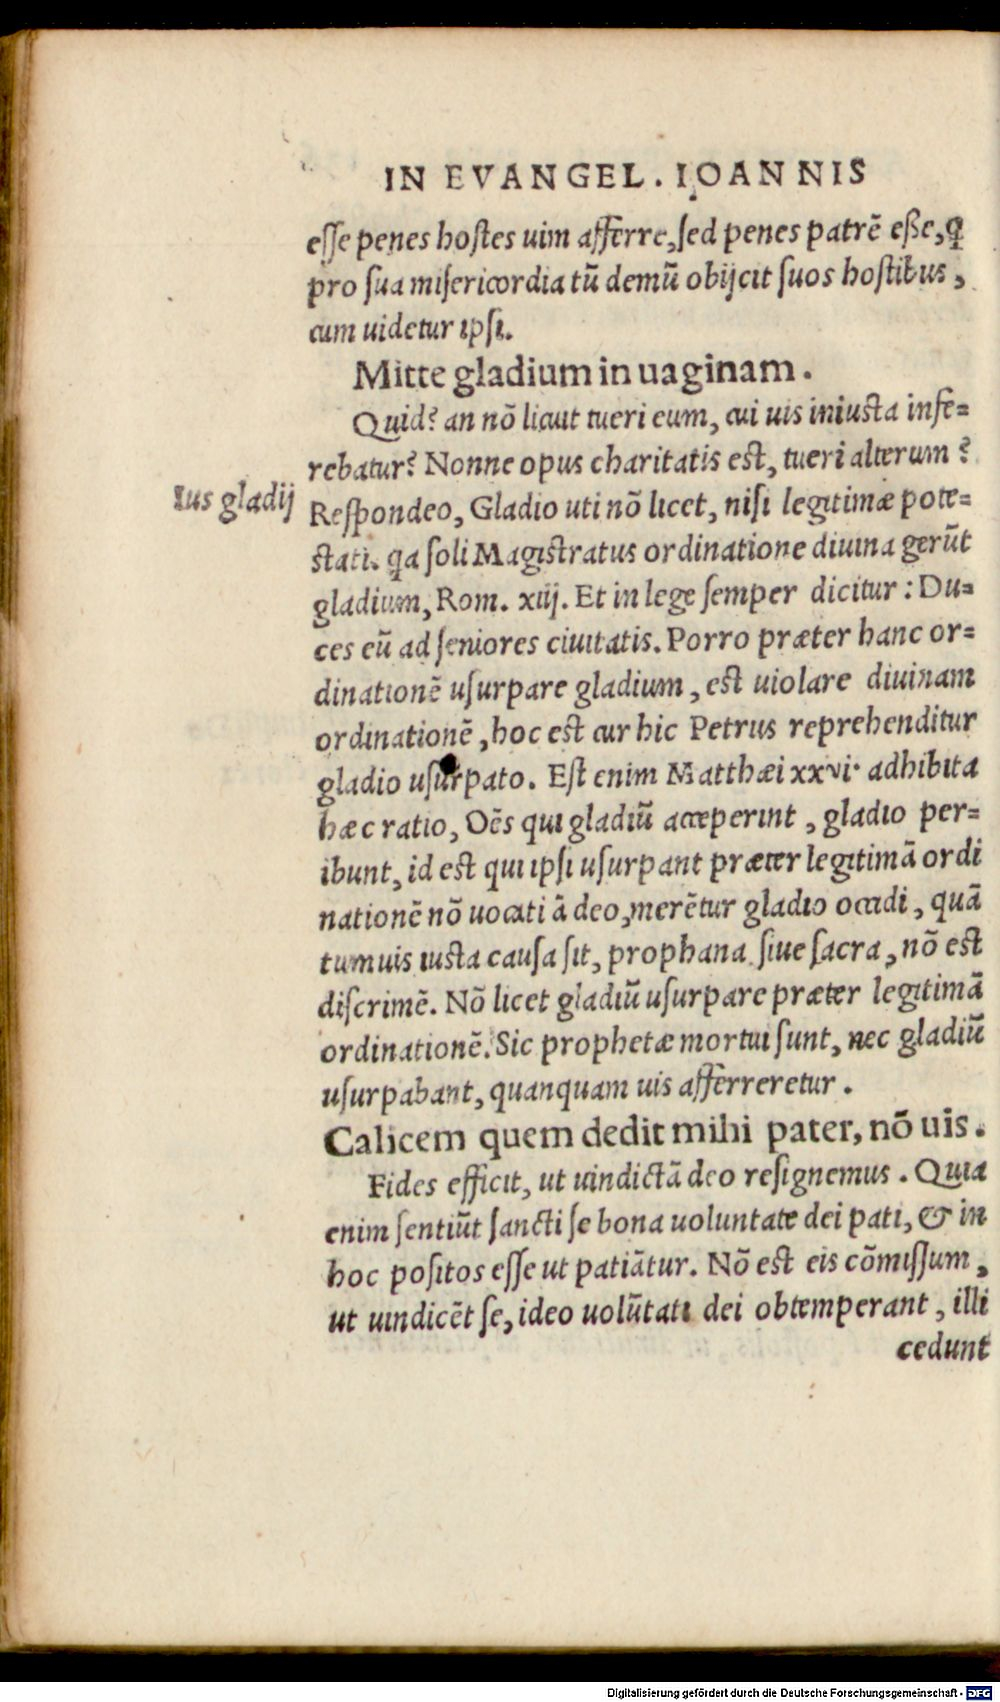 IN EVANGEL. IOANNIS
esse penes hostes uim afferre, sed penes patrẽ eße, q̃
pro sua misericordia tũ demũ obijcit suos hostibus,
cum uidetur ipsi.
Mitte gladium in uaginam.
Quid? an nõ licuit tueri eum, cui uis iniusta infe=
rebatur? Nonne opus charitatis est, tueri alterum?
Ius gladij
Respondeo, Gladio uti nõ licet, nisi legitimæ pote=
stati. qa soli Magistratus ordinatione diuina gerũt
gladium, Rom. xiij. Et in lege semper dicitur: Du=
ces eũ ad seniores ciuitatis. Porro præter hanc or=
dinationẽ usurpare gladium, est uiolare diuinam
ordinationẽ, hoc est cur hic Petrus reprehenditur
gladio usurpato. Est enim Matthæi xxvi. adhibita
hæc ratio, Oẽs qui gladiũ acceperint, gladio per=
ibunt, id est qui ipsi usurpant præter legitimã ordi
nationẽ nõ uocati ã deo, merẽtur gladio occidi, quã
tumuis iusta causa sit, prophana siue sacra, nõ est
discrimẽ. Nõ licet gladiũ usurpare præter legitimã
ordinationẽ. Sic prophetæ mortui sunt, nec gladiũ
usurpabant, quanquam uis afferreretur.
Calicem quem dedit mihi pater, nõ uis.
Fides efficit, ut uindictã deo resignemus. Quia
enim sentiũt sancti se bona uoluntate dei pati, & in
hoc positos esse ut patiãtur. Nõ est eis cõmissum,
ut uindicẽt se, ideo uolũtati dei obtemperant, illi
cedunt
Digitalisierung gefördert durch die Deutsche Forschungsgemeinschaft - DFG